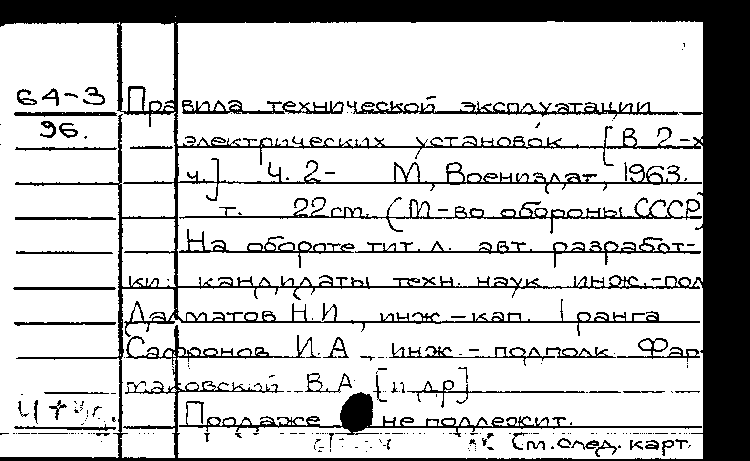 64-3 Правила технической эксплуатации
96. электрических установок. [В 2-х
ч.] Ч. 2- М., Воениздат, 1963.
т. 22 см. (М-во обороны СССР)
На обороте тит. л. авт. разработ-
ки: кандидаты техн. наук инж.-пол
Далматов Н.И., инж-кап. I ранга
Сафронов И.А., инж.-подполк Фар-
маковский В.А [и др]
Продаже не подлежит.
См. след. карт.